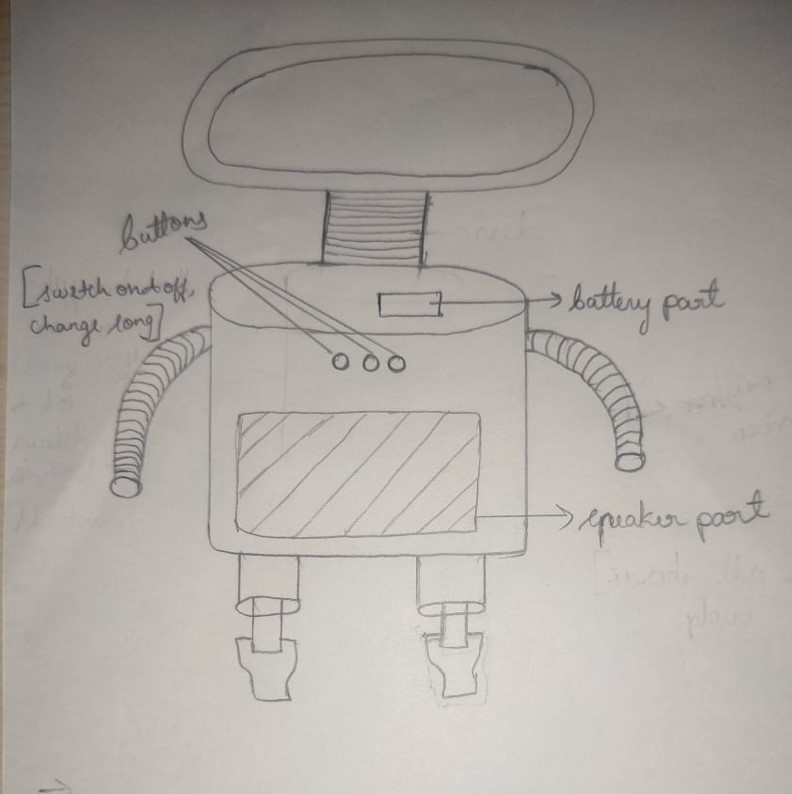 buttons
[switch on & off,
change long]
battery part
speaker part